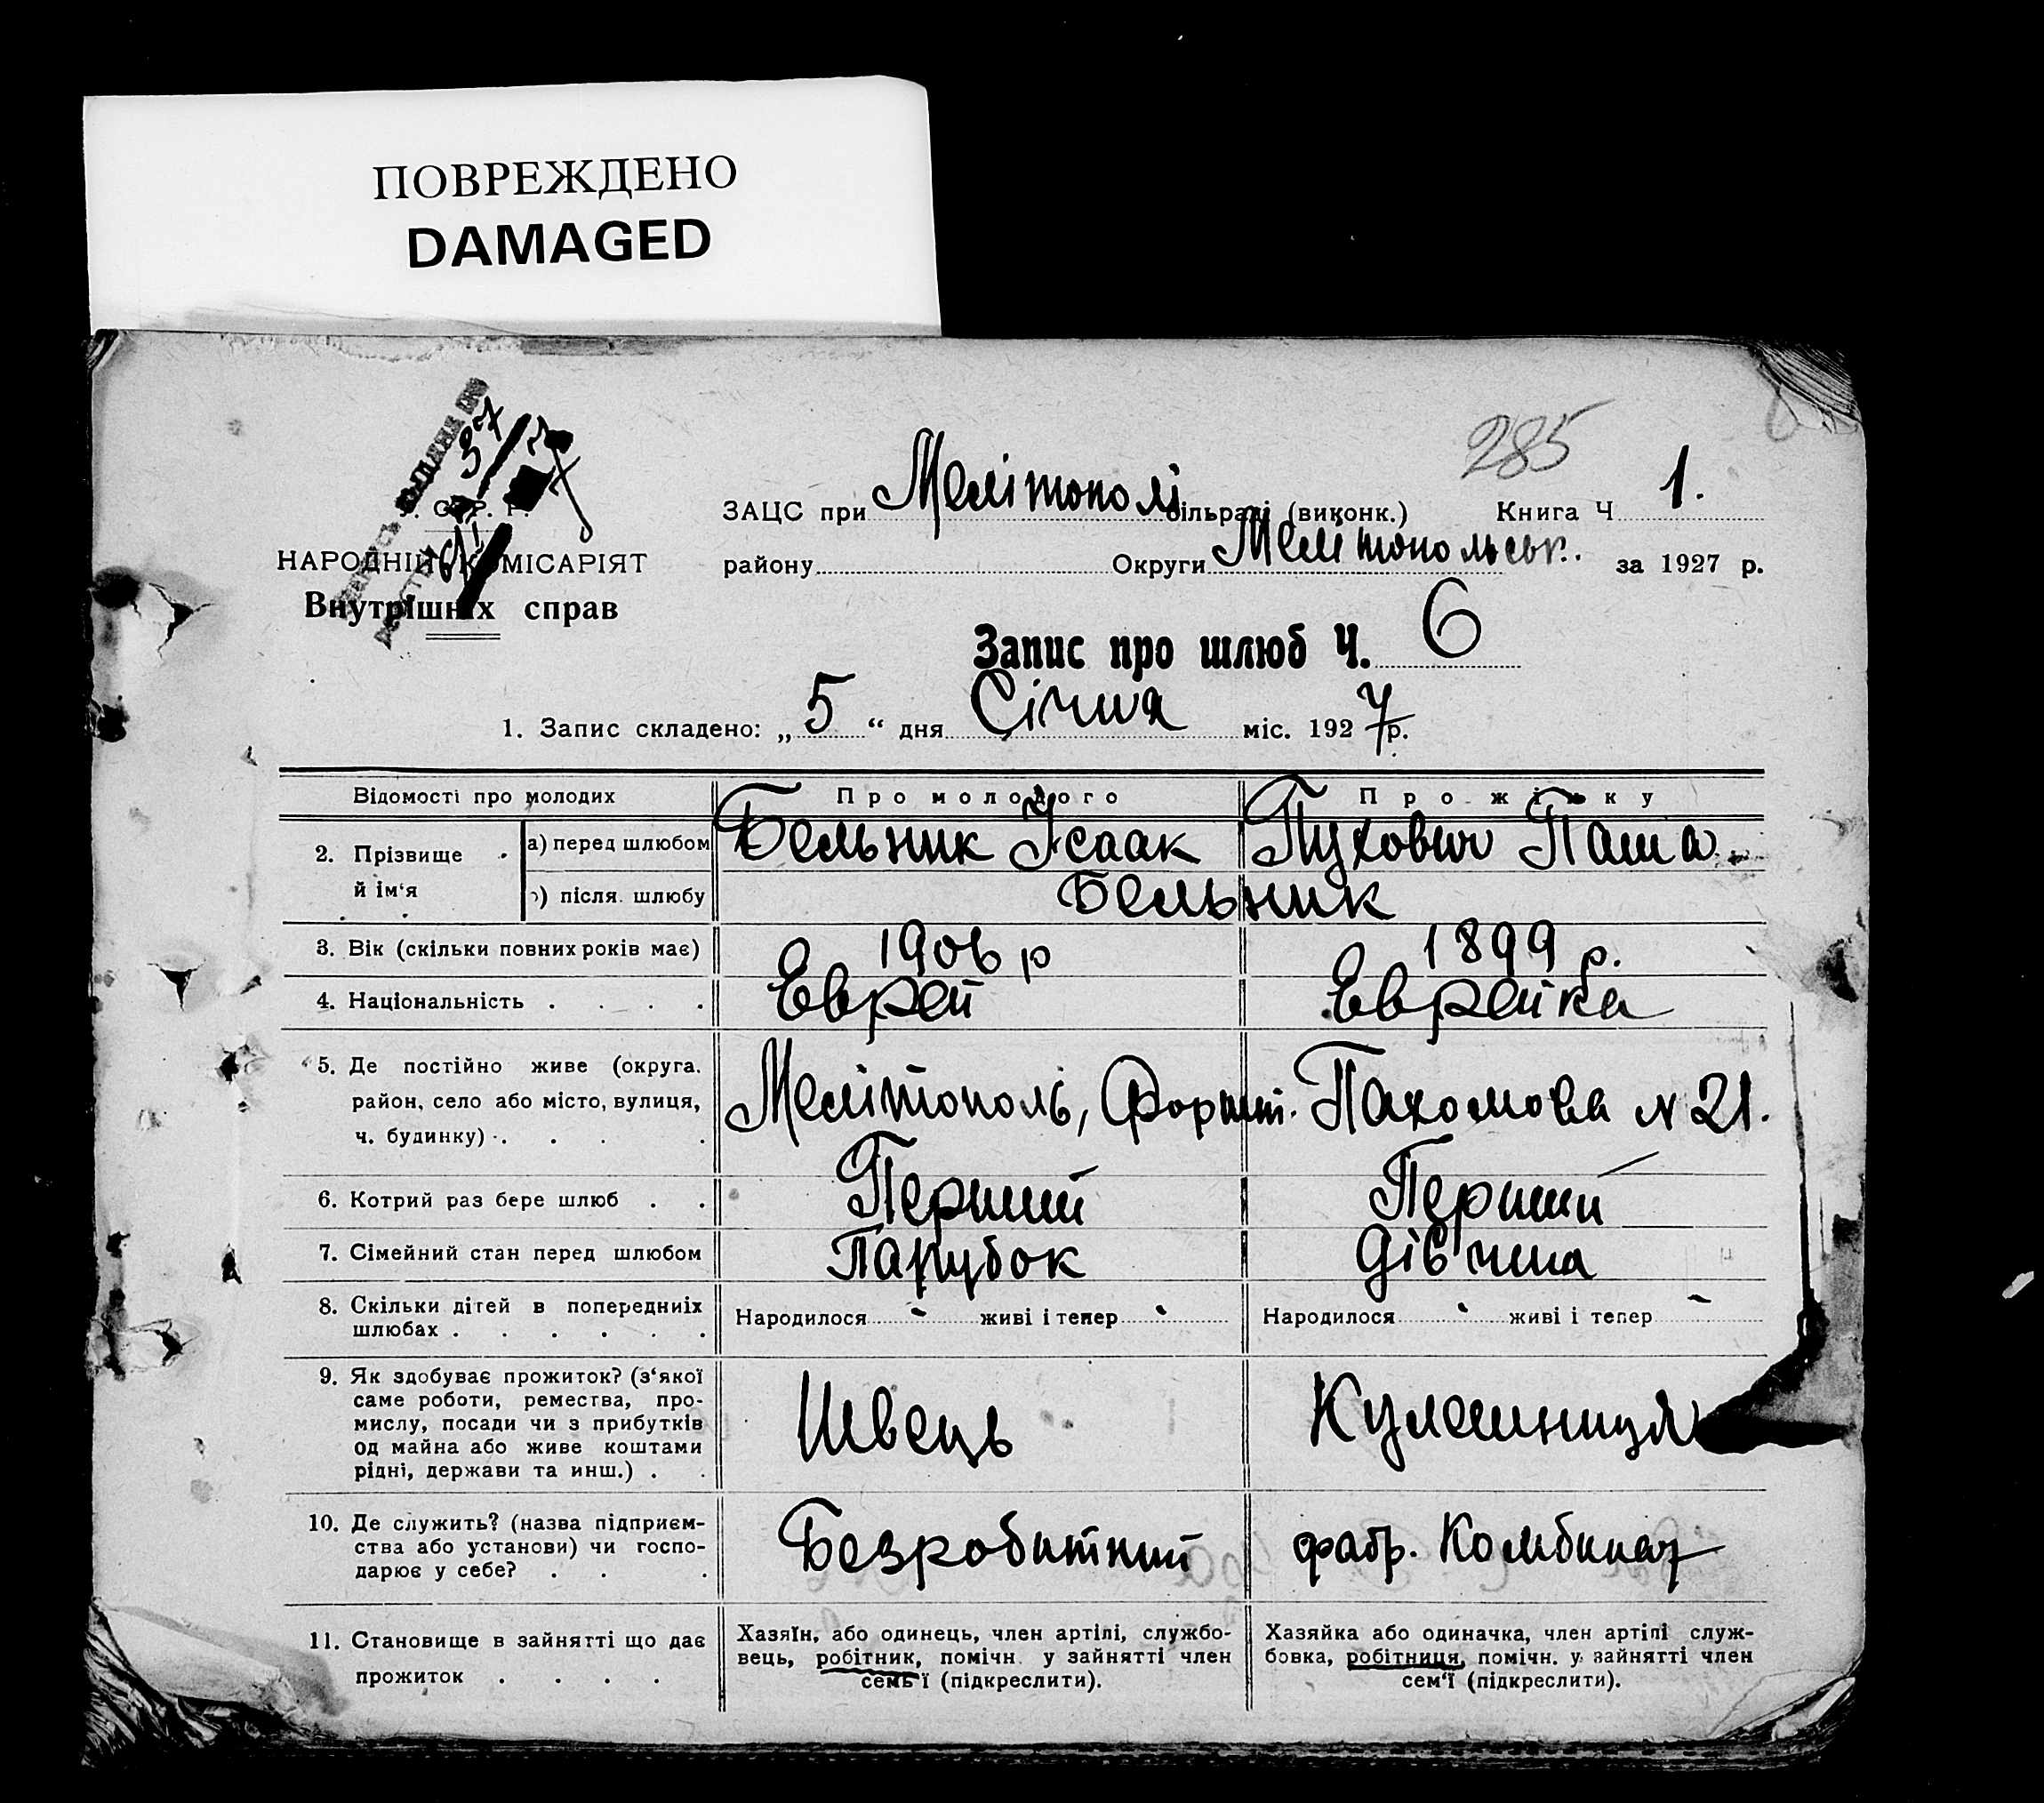 ПОВРЕЖДЕНО
DAMAGED
285
ЗАЦС при Мелітополі сільраді (виконк.) Книга Ч 1.
НАРОДНІЙ КОМІСАРІЯТ
району Округи Мелітопольськ. за 1927 р.
Внутрішніх справ
Запис про шлюб Ч. 6
1. Запис складено: „5“ дня Січня міс. 1927 р.
Відомості про молодих Про молодого Про жінку
2. Прізвище й ім‘я а) перед шлюбом Бельник Ісаак Пухович Паша
) після шлюбу Бельник
3. Вік (скільки повних років має) 1906 р 1899 р.
4. Національність Еврей Еврейка
5. Де постійно живе (округа.
район, село або місто, вулиця, Мелітополь, Форшт. Пахомова № 21.
ч. будинку)
6. Котрий раз бере шлюб Перший Перший
7. Сімейний стан перед шлюбом Парубок Дівчина
8. Скільки дітей в попередниіх
шлюбах Народилося - живі і тепер - Народилося - живі і тепер -
9. Як здобуває прожиток? (з‘якої
саме роботи, ремества, про-
мислу, посади чи з прибутків Швець
од майна або живе коштами
рідні, держави та инш.)
10. Де служить? (назва підприєм-
ства або установи) чи госпо- Безробитний фабр. Комбинат
дарює у себе?
11. Становище в зайнятті що дає
прожиток
Хазяїн, або одинець, член артілі, службо-
вець, робітник, помічн. у зайнятті член
семь‘ї (підкреслити).
Хазяйка або одиначка, член артілі служ-
бовка, робітниця, помічн. у зайнятті член
сем‘ї (підкреслити).